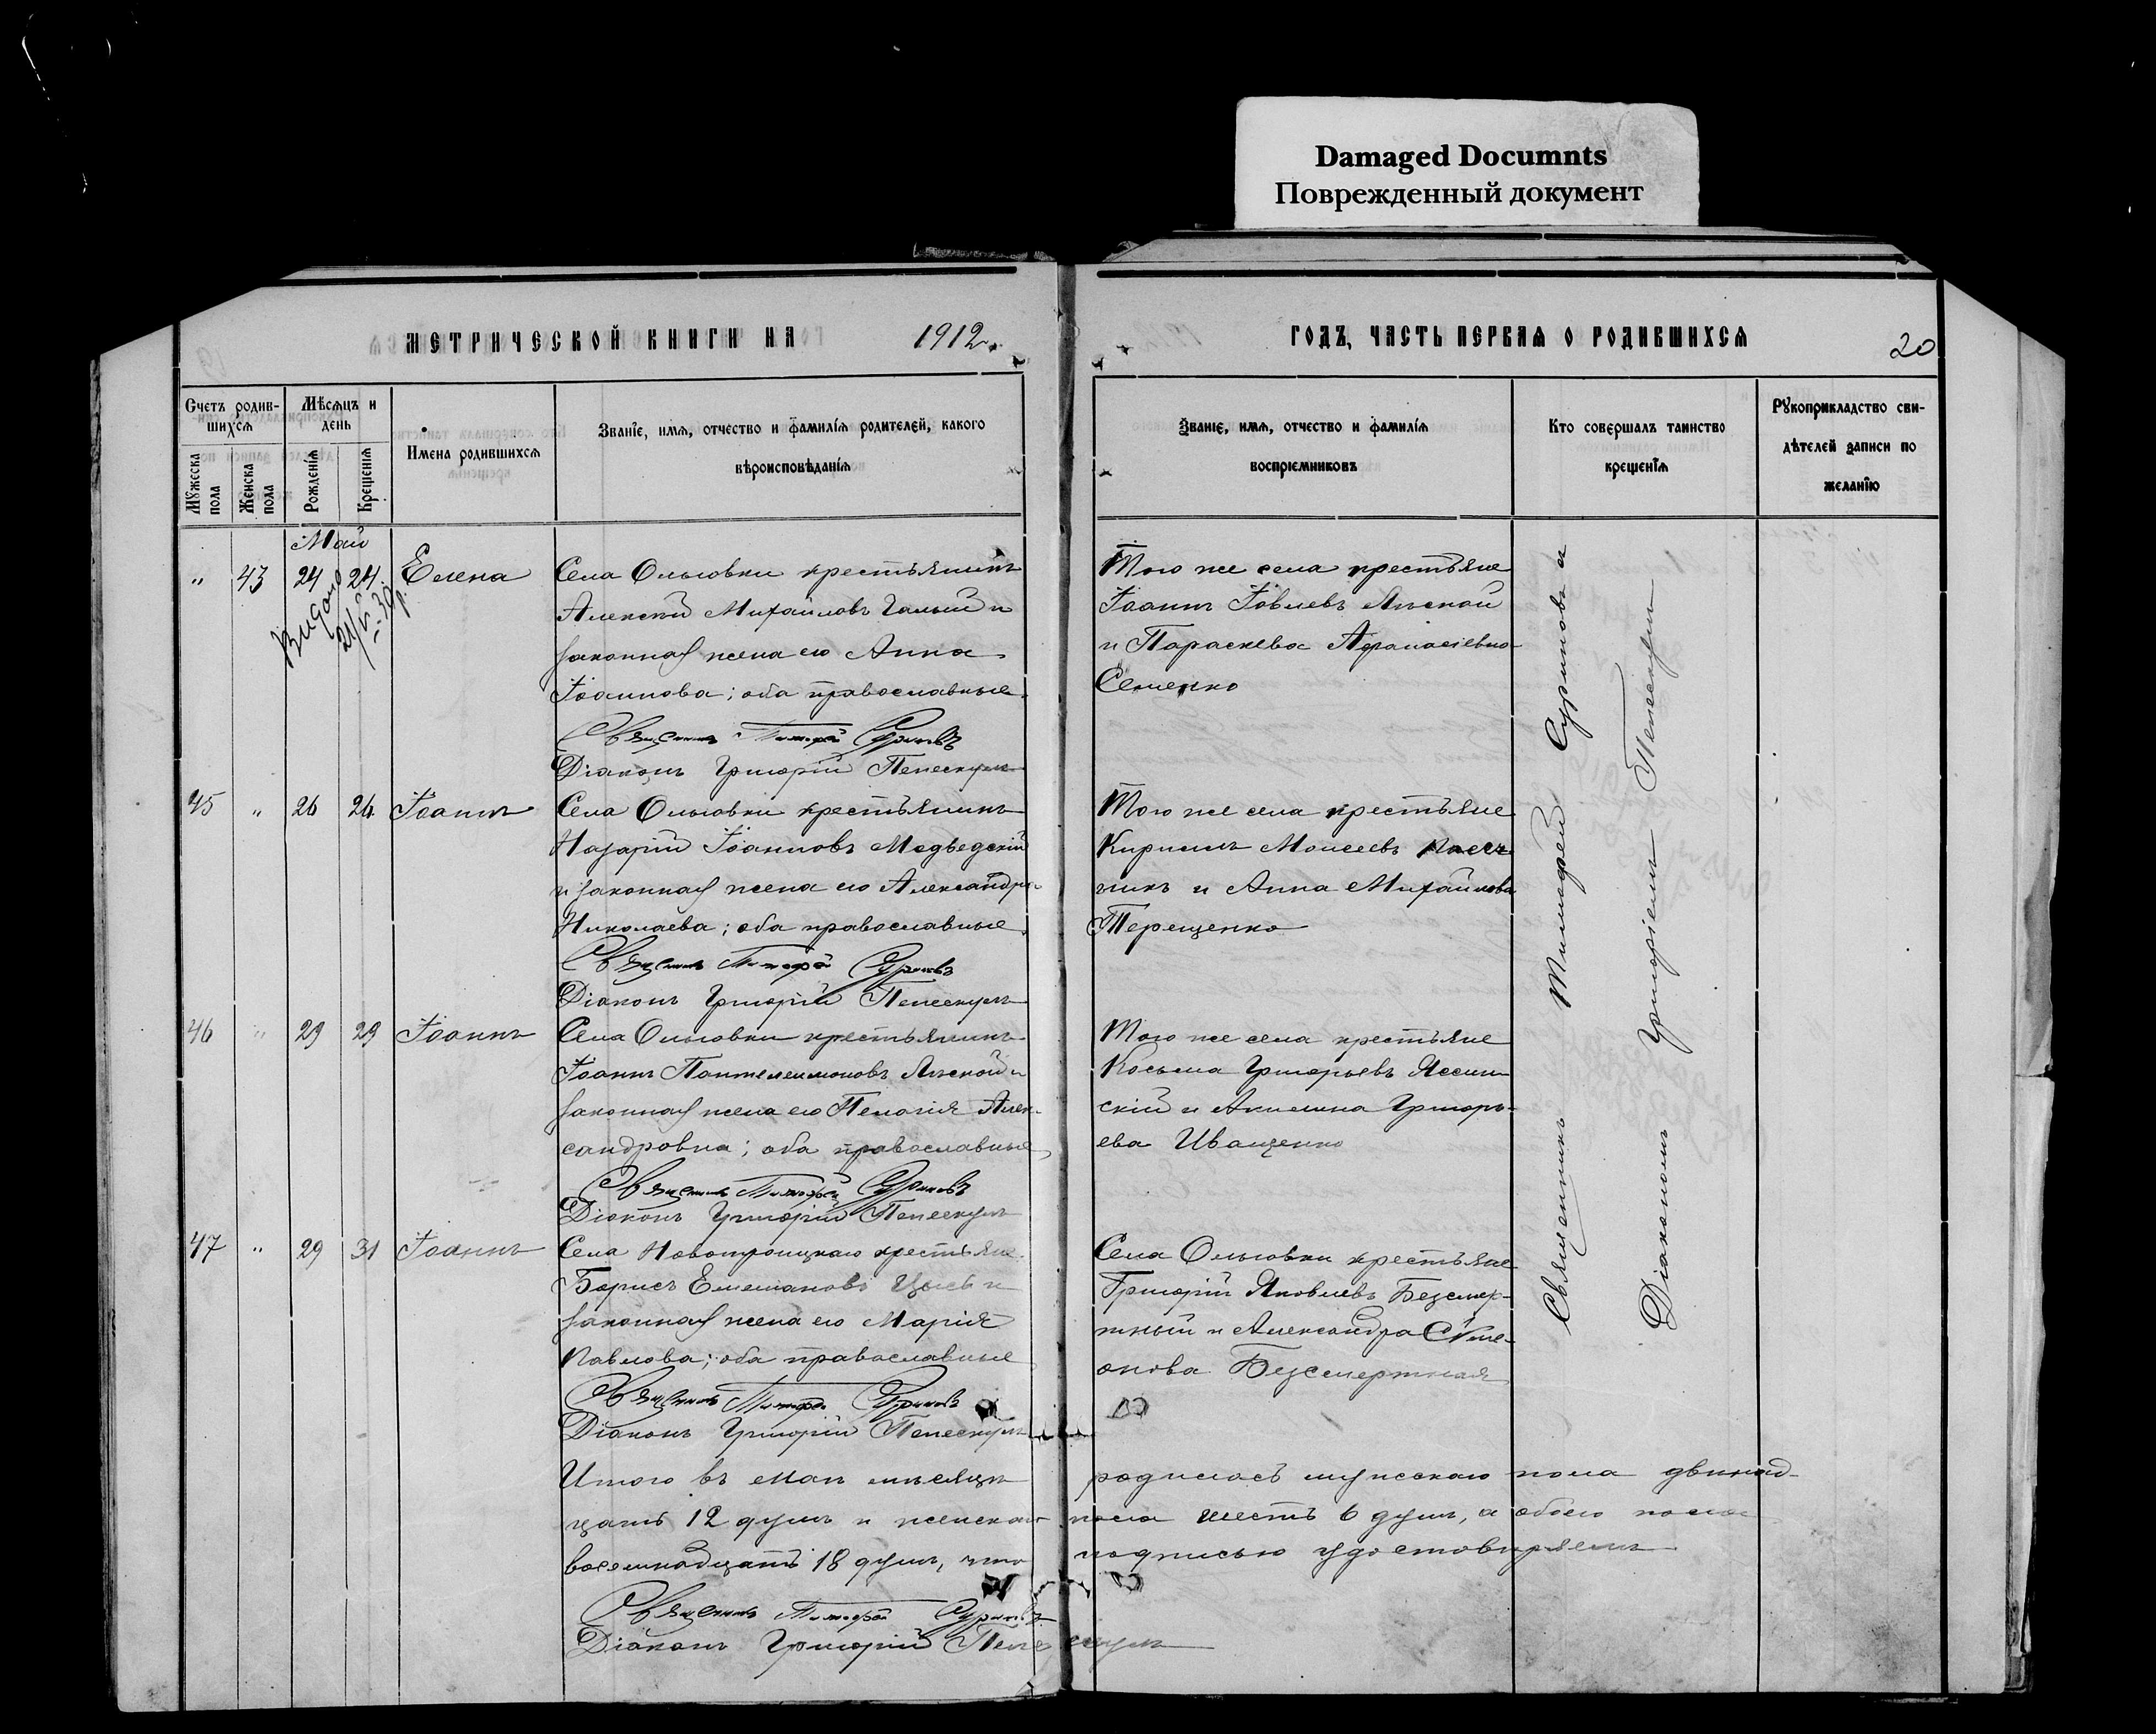 Damaged Documnts
Поврежденный документ
МЕТРИЧЕСКОЙ КНИГИ НА 1912 г.
ГОДЪ, ЧАСТЬ ПЕРВАЯ О РОДИВШИХСЯ
20
Счетъ родив-
шихся
Мужеска
пола
Женска
пола
Мѣсяцъ и
день
Рожденія
Крещенія
Имена родившихся
Званіе, имя, отчество и фамилія родителей, какого
вѣроисповѣданія
Званіе, имя, отчество и фамилія
воспріемниковъ
Кто совершалъ таинство
крещенія
Рукоприкладство сви-
дѣтелей записи по
желанію
Май
" 43 24 24 Елена
Села Ольговки крестьянинъ
Алексѣй Михайловъ и
законная жена его Анна
Іоаннова; оба православные.
Священникъ Тимофей Суриновъ
Діаконъ Григорій Пепескулъ
Того же села крестьяне
Іоаннъ Іовлевъ
и Параскева Афанасіевна
Семенко
45 " 26 26 Іоаннъ
Села Ольговки крестьянинъ
Назарій Іоанновъ Медведскій
и законная жена его Александра
Николаева; оба православные.
Священникъ Тимофей Суриновъ
Діаконъ Григорій Пепескулъ
Того же села крестьяне
Кириллъ Моисеевъ Пасеч-
никъ и Анна Михайлова
Терещенко
46 " 29 29 Іоаннъ
Села Ольговки крестьянинъ
Іоаннъ Пантелеимоновъ и
законная жена его Пелагія Алек-
сандровна; оба православные,
Священникъ Тимофей Суриновъ
Діаконъ Григорій Пепескулъ
Того же села крестьяне
Косьма Григорьевъ Ясин-
скій и Акилина Григорь-
ева Иващенко
47 " 29 31 Іоаннъ
Села Новотроицкаго крестьяне
Борисъ Емельяновъ и
законная жена его Марія
Павлова; оба православные
Священникъ Тимофей Суриновъ
Діаконъ Григорій Пепескулъ
Села Ольговки крестьяне
Григорій Яковлевъ Безсмер-
тный и Александра Симе-
онова Безсмертная
Священникъ Тимофей Суриновъ и
Діакономъ Григоріемъ Пепескулъ
Итого въ маѣ мѣсяцѣ родилось мужскаго пола двѣнад-
цать 12 душъ и женскаго пола шесть 6 душъ, а обоего пола
восемнадцать 18 душъ, что подписью удостовѣряемъ.
Священникъ Тимофей Суриновъ
Діаконъ Григорій Пепескулъ